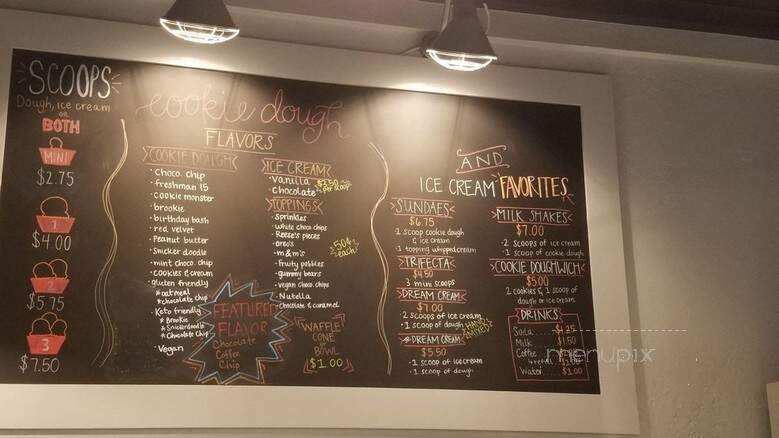 SCOOPS
Dough, ice cream
OR
BOTH
MINI
$2.75
1
$4.00
2
$5.75
3
$7.50
cookie dough
FLAVORS
COOKIE DOUGH
• choco chip
• freshman 15
• cookie monster
• brookie
• birthday bash
• red velvet
• Peanut butter
• snicker doodle
• mint choco chip
• cookies & cream
• gluten friendly
* oatmeal
* chocolate chip
• Keto friendly
* Brookie
* Snickerdoodle
* Chocolate Chip
• Vegan
ICE CREAM
• vanilla
• chocolate
$3.50
per scoop
TOPPINGS
• sprinkles
• white choco chips
• Reese's pieces
• oreo's
• m & m's
• Fruity pebbles
• gummy bears
• vegan choco chips
• Nutella
• Chocolate & caramel
50¢
each
FEATURED
FLAVOR
Chocolate
Coffee
Chip
WAFFLE
CONE
or
BOWL
$1.00
AND
ICE CREAM FAVORITES
SUNDAES
$6.75
1 scoop cookie dough
& ice cream
1 topping whipped cream
TRIFECTA
$4.50
3 mini scoops
DREAM CREAM
$7.00
• 2 scoops of ice cream
• 1 scoop of dough
DREAM CREAM
$5.50
• 1 scoop of ice cream
• 1 scoop of dough
MILK SHAKES
$7.00
• 2 scoops of ice cream
• 1 scoop of cookie dough
COOKIE DOUGHWICH
$5.00
2 cookies & 1 scoop of
dough or ice cream
DRINKS
Soda $1.25
Milk $1.50
Coffee
Water $1.00
menupix